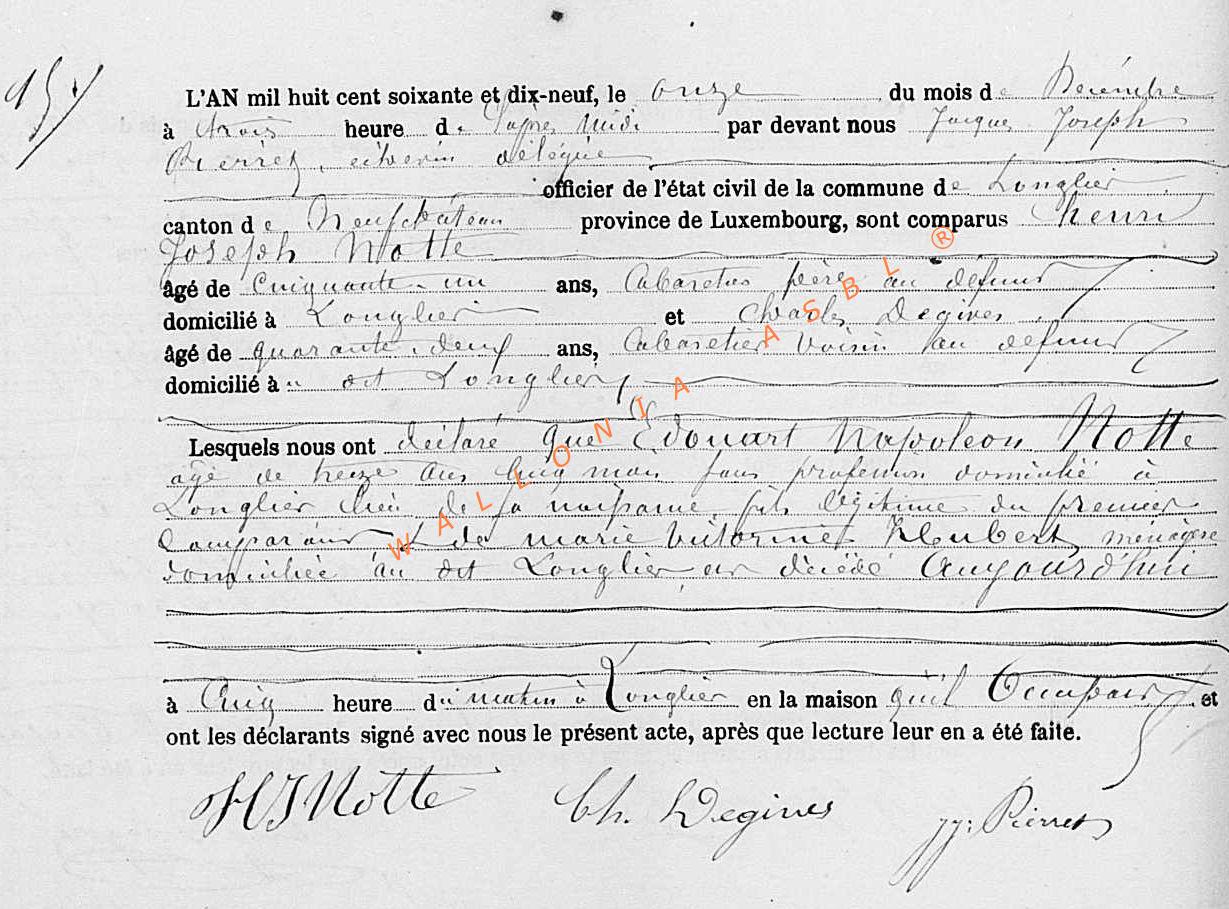 L'AN mil huit cent soixante et dix-neuf, le onze du mois de Décembre
à trois heure de l'après midi par devant nous Jacques Joseph
Pierret, echevin délégué
officier de l'état civil de la commune de Longlier
canton de Neufchâteau province de Luxembourg, sont comparus henri
Joseph Notte
âgé de Cinquante un ans, Cabaretier père au défunt
domicilié à Longlier et Charles Degives
âgé de quarante deux ans, Cabaretier voisin au defunt
domicilié au dit Longlier
Lesquels nous ont déclaré que Edouart Napoléon Notte
agé de treize ans cinq mois sans profession domicilié à
Longlier lieu de sa naissance, fils légitime du premier
Comparant et de marie Victorine Houbert, ménagère
domiciliée au dit Longlier est décédé Aujourd'hui
à Cinq heure du matin à Longlier en la maison qu'il Occupait et
ont les déclarants signé avec nous le présent acte, après que lecture leur en a été faite.
HJ Notte Ch. Degives JJ: Pierret
WALLONIA ASBL ®